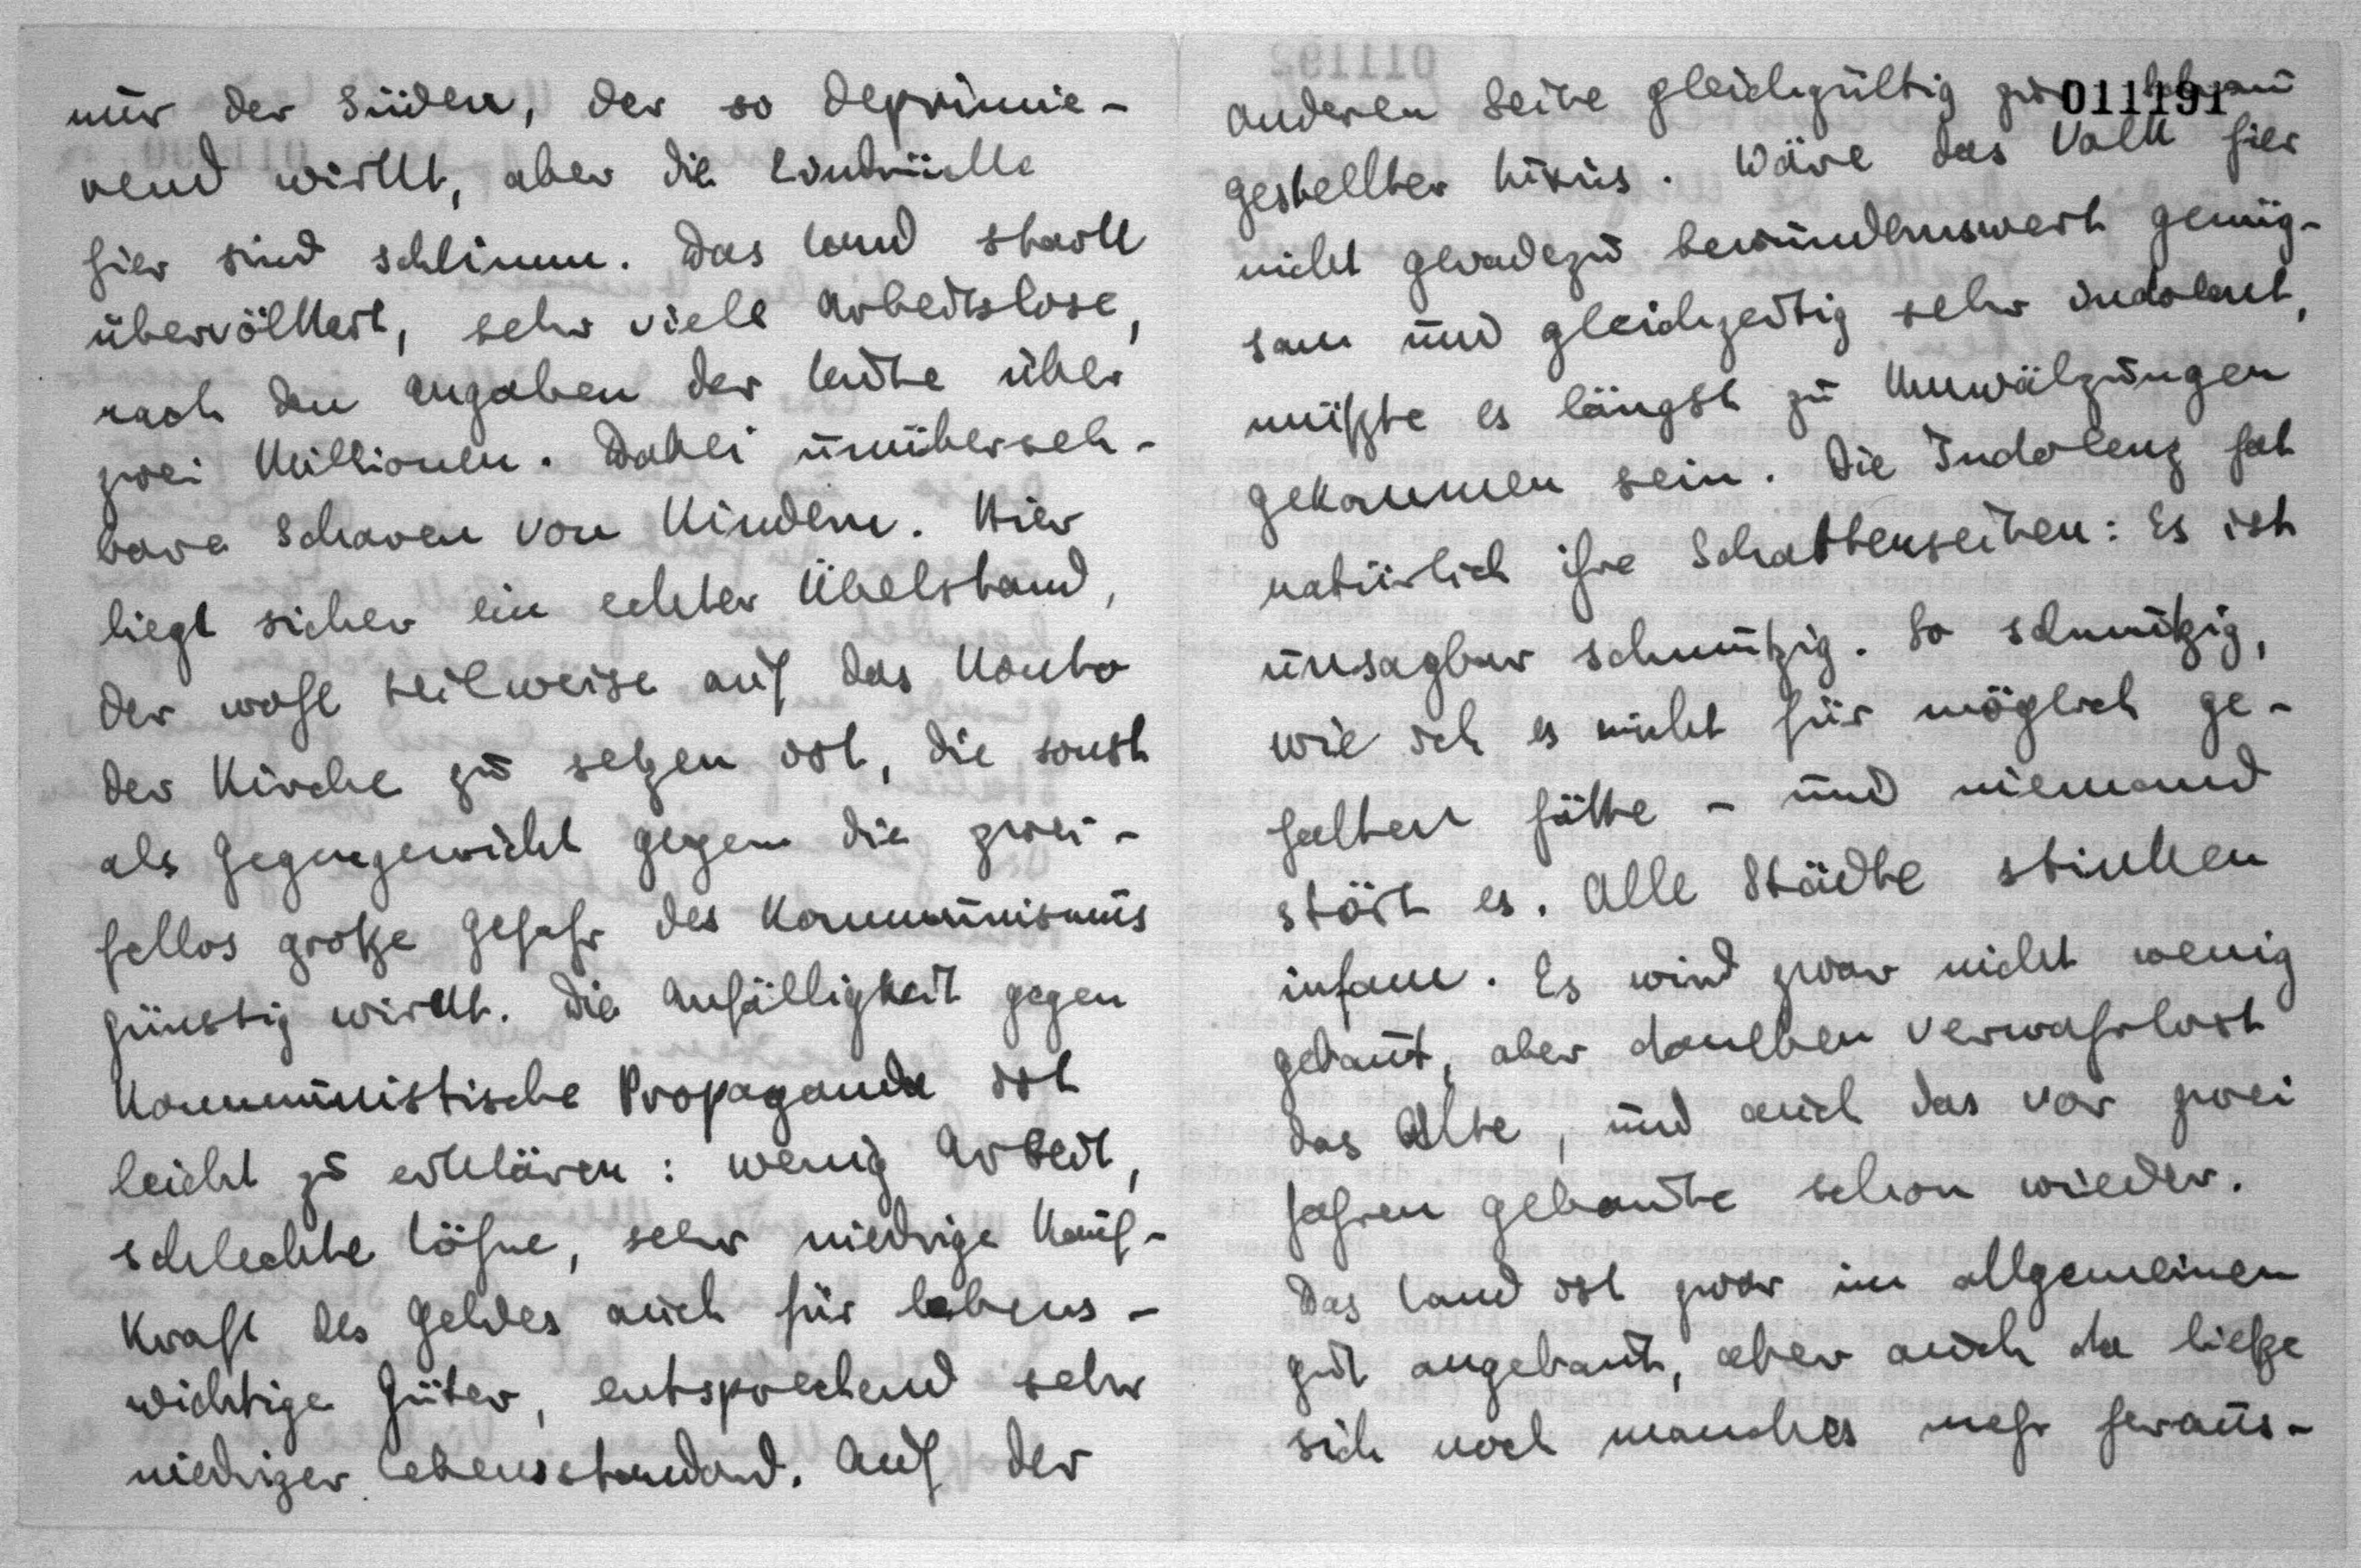 nur der Süden, der so deprimie-
rend wirkt, aber die Eindrücke
hier sind schlimm. Das Land stark
übervölkert, sehr viele Arbeitslose,
nach den Angaben der Leute über
zwei Millionen. Dabei unüberseh-
bare Scharen von Kindern. Hier
liegt sicher ein echter Übelstand,
der wohl teilweise auf das Konto
der Kirche zu setzen ist, die sonst
als Gegengewicht gegen die zwei-
fellos große Gefahr des Kommunismus
günstig wirkt. Die Anfälligkeit gegen
kommunistische Propaganda ist
leicht zu erklären: wenig Arbeit,
schlechte Löhne, sehr niedrige Kauf-
kraft des Geldes auch für lebens-
wichtige Güter, entsprechend sehr
niedriger Lebensstandard. Auf der
011192
011191
anderen Seite gleichgültig zur Schau
gestellter Luxus. Wäre das Volk hier
nicht geradezu bewundernswert genüg-
sam und gleichzeitig sehr indolent,
müßte es längst zu Umwälzungen
gekommen sein. Die Indolenz hat
natürlich ihre Schattenseiten: Es ist
unsagbar schmutzig. So schmutzig,
wie ich es nicht für möglich ge-
halten hätte - und niemand
stört es. Alle Städte stinken
infam. Es wird zwar nicht wenig
gebaut, aber daneben verwahrlost
das Alte, und auch das vor zwei
Jahren gebaute schon wieder.
Das Land ist zwar im allgemeinen
gut angebaut, aber auch da ließe
sich noch manches mehr heraus-